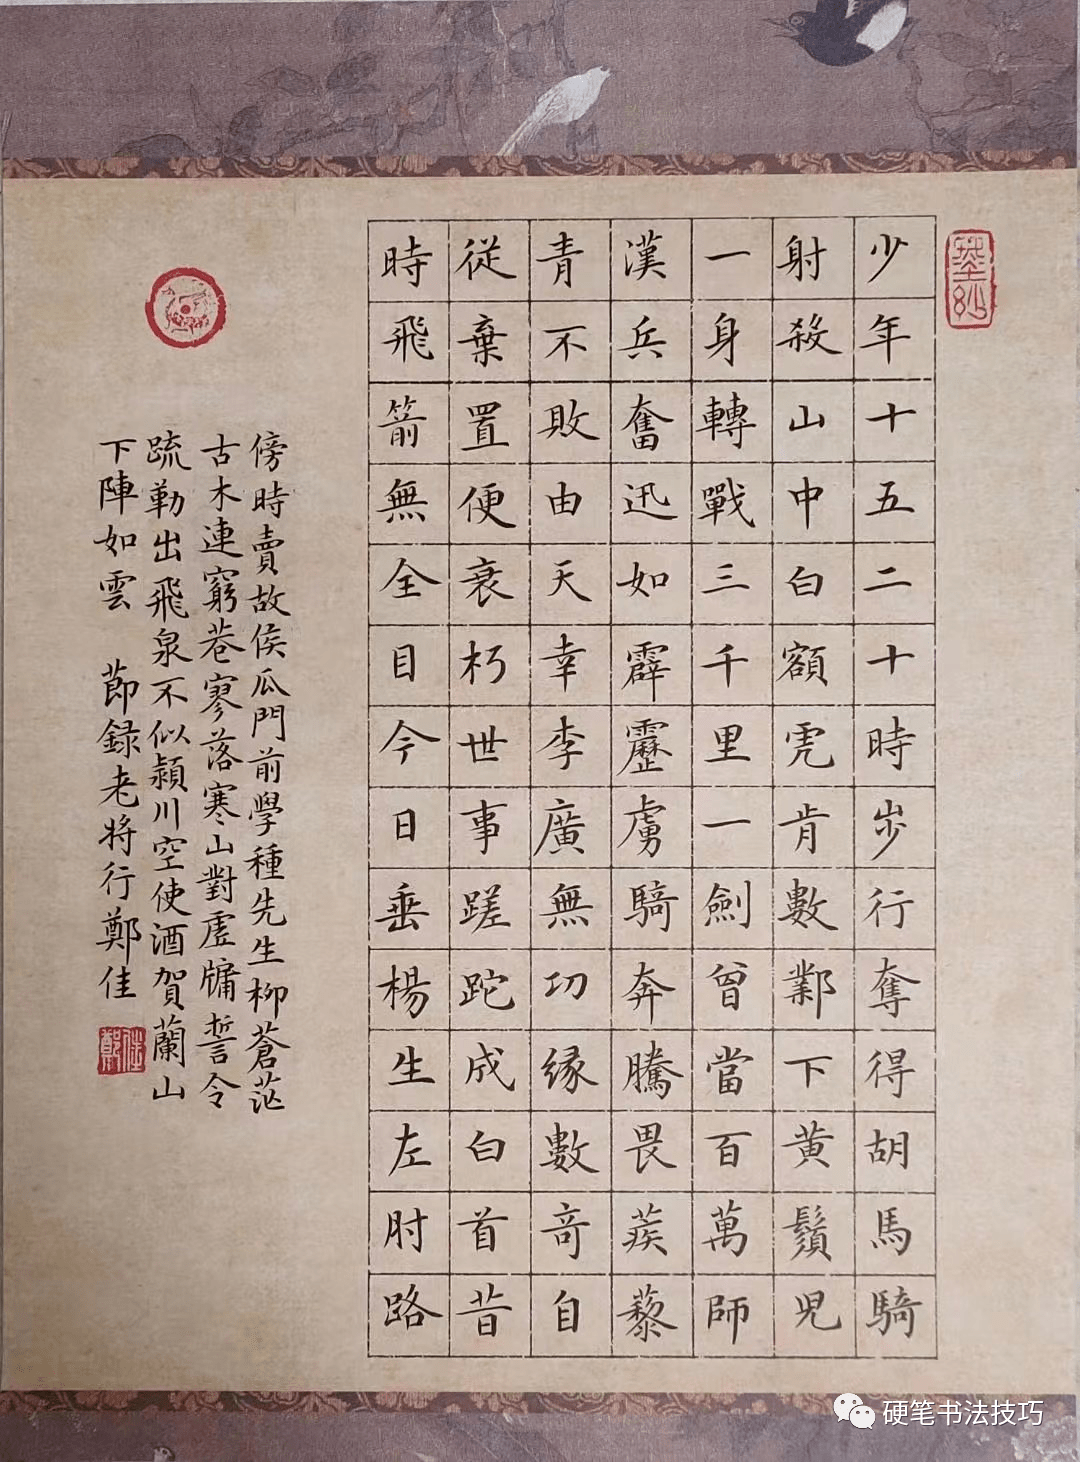 少年十五二十時步行奪得胡馬騎
射殺山中白額虎肯數鄴下黃鬚兒
一身轉戰三千里一劍曾當百萬師
漢兵奮迅如霹靂虜騎奔騰畏蒺藜
青不敗由天幸李廣無功緣數奇自
從棄置便衰朽世事蹉跎成白首昔
時飛箭無全目今日垂楊生左肘路
傍時賣故侯瓜門前學種先生柳蒼茫
古木連窮巷寥落寒山對虛牖誓令
疏勒出飛泉不似潁川空使酒賀蘭山
下陣如雲 節錄老將行鄭佳
鄭佳
硬笔书法技巧